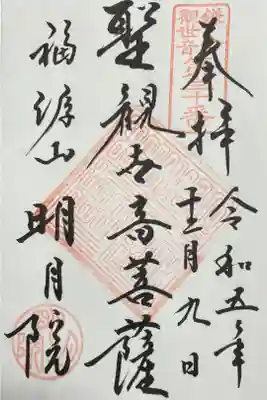 奉拝 令和五年
十二月九日
聖観世音菩薩
福源山 明月院
観世音第三十番